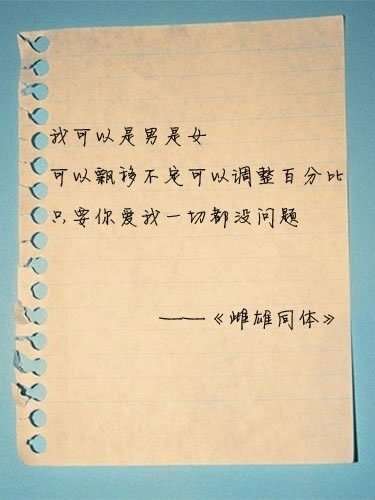 我可以是男是女
可以飘移不定可以调整百分比
只要你爱我一切都没问题
——《雌雄同体》